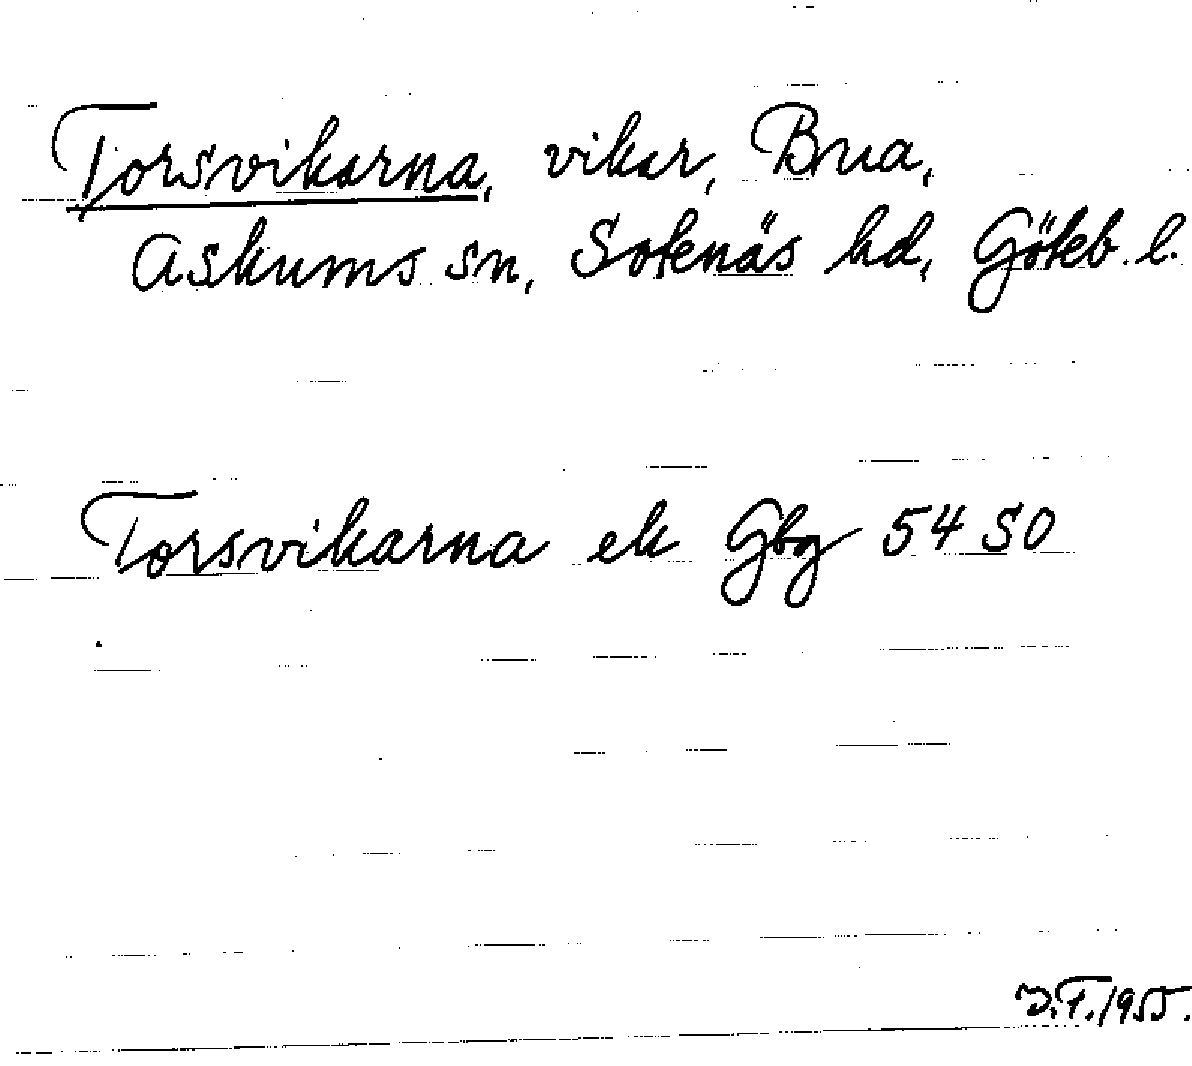 Torsvikarna, vikar, Brua,
Askums sn, Sotenäs hd, Göteb. l.
Torsvikarna ek Gbg 54 SO
D.F. 1955.